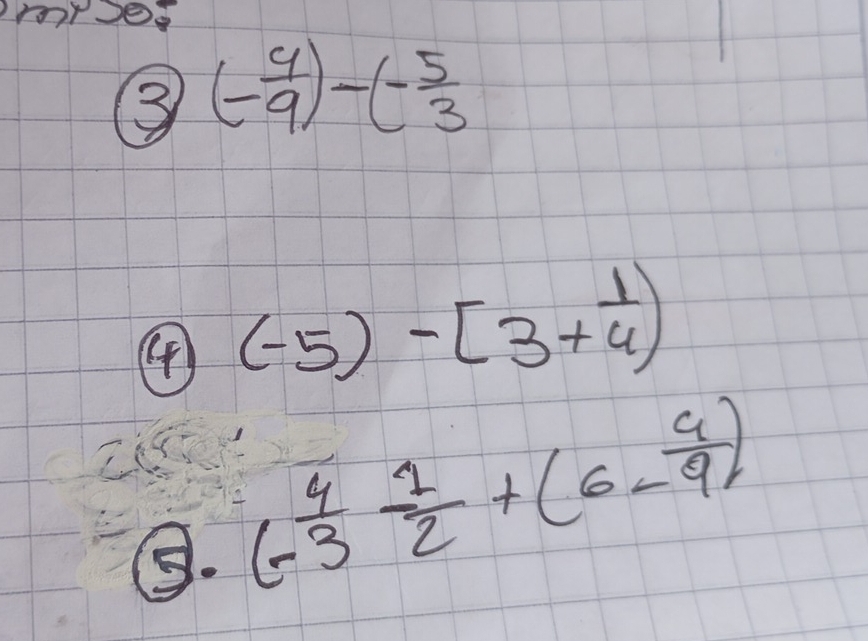 ③ (-4/9) - (-5/3
④ (-5) - [3 + 1/4)
⑤. (-4/3 - 1/2 + (6 - 4/9)